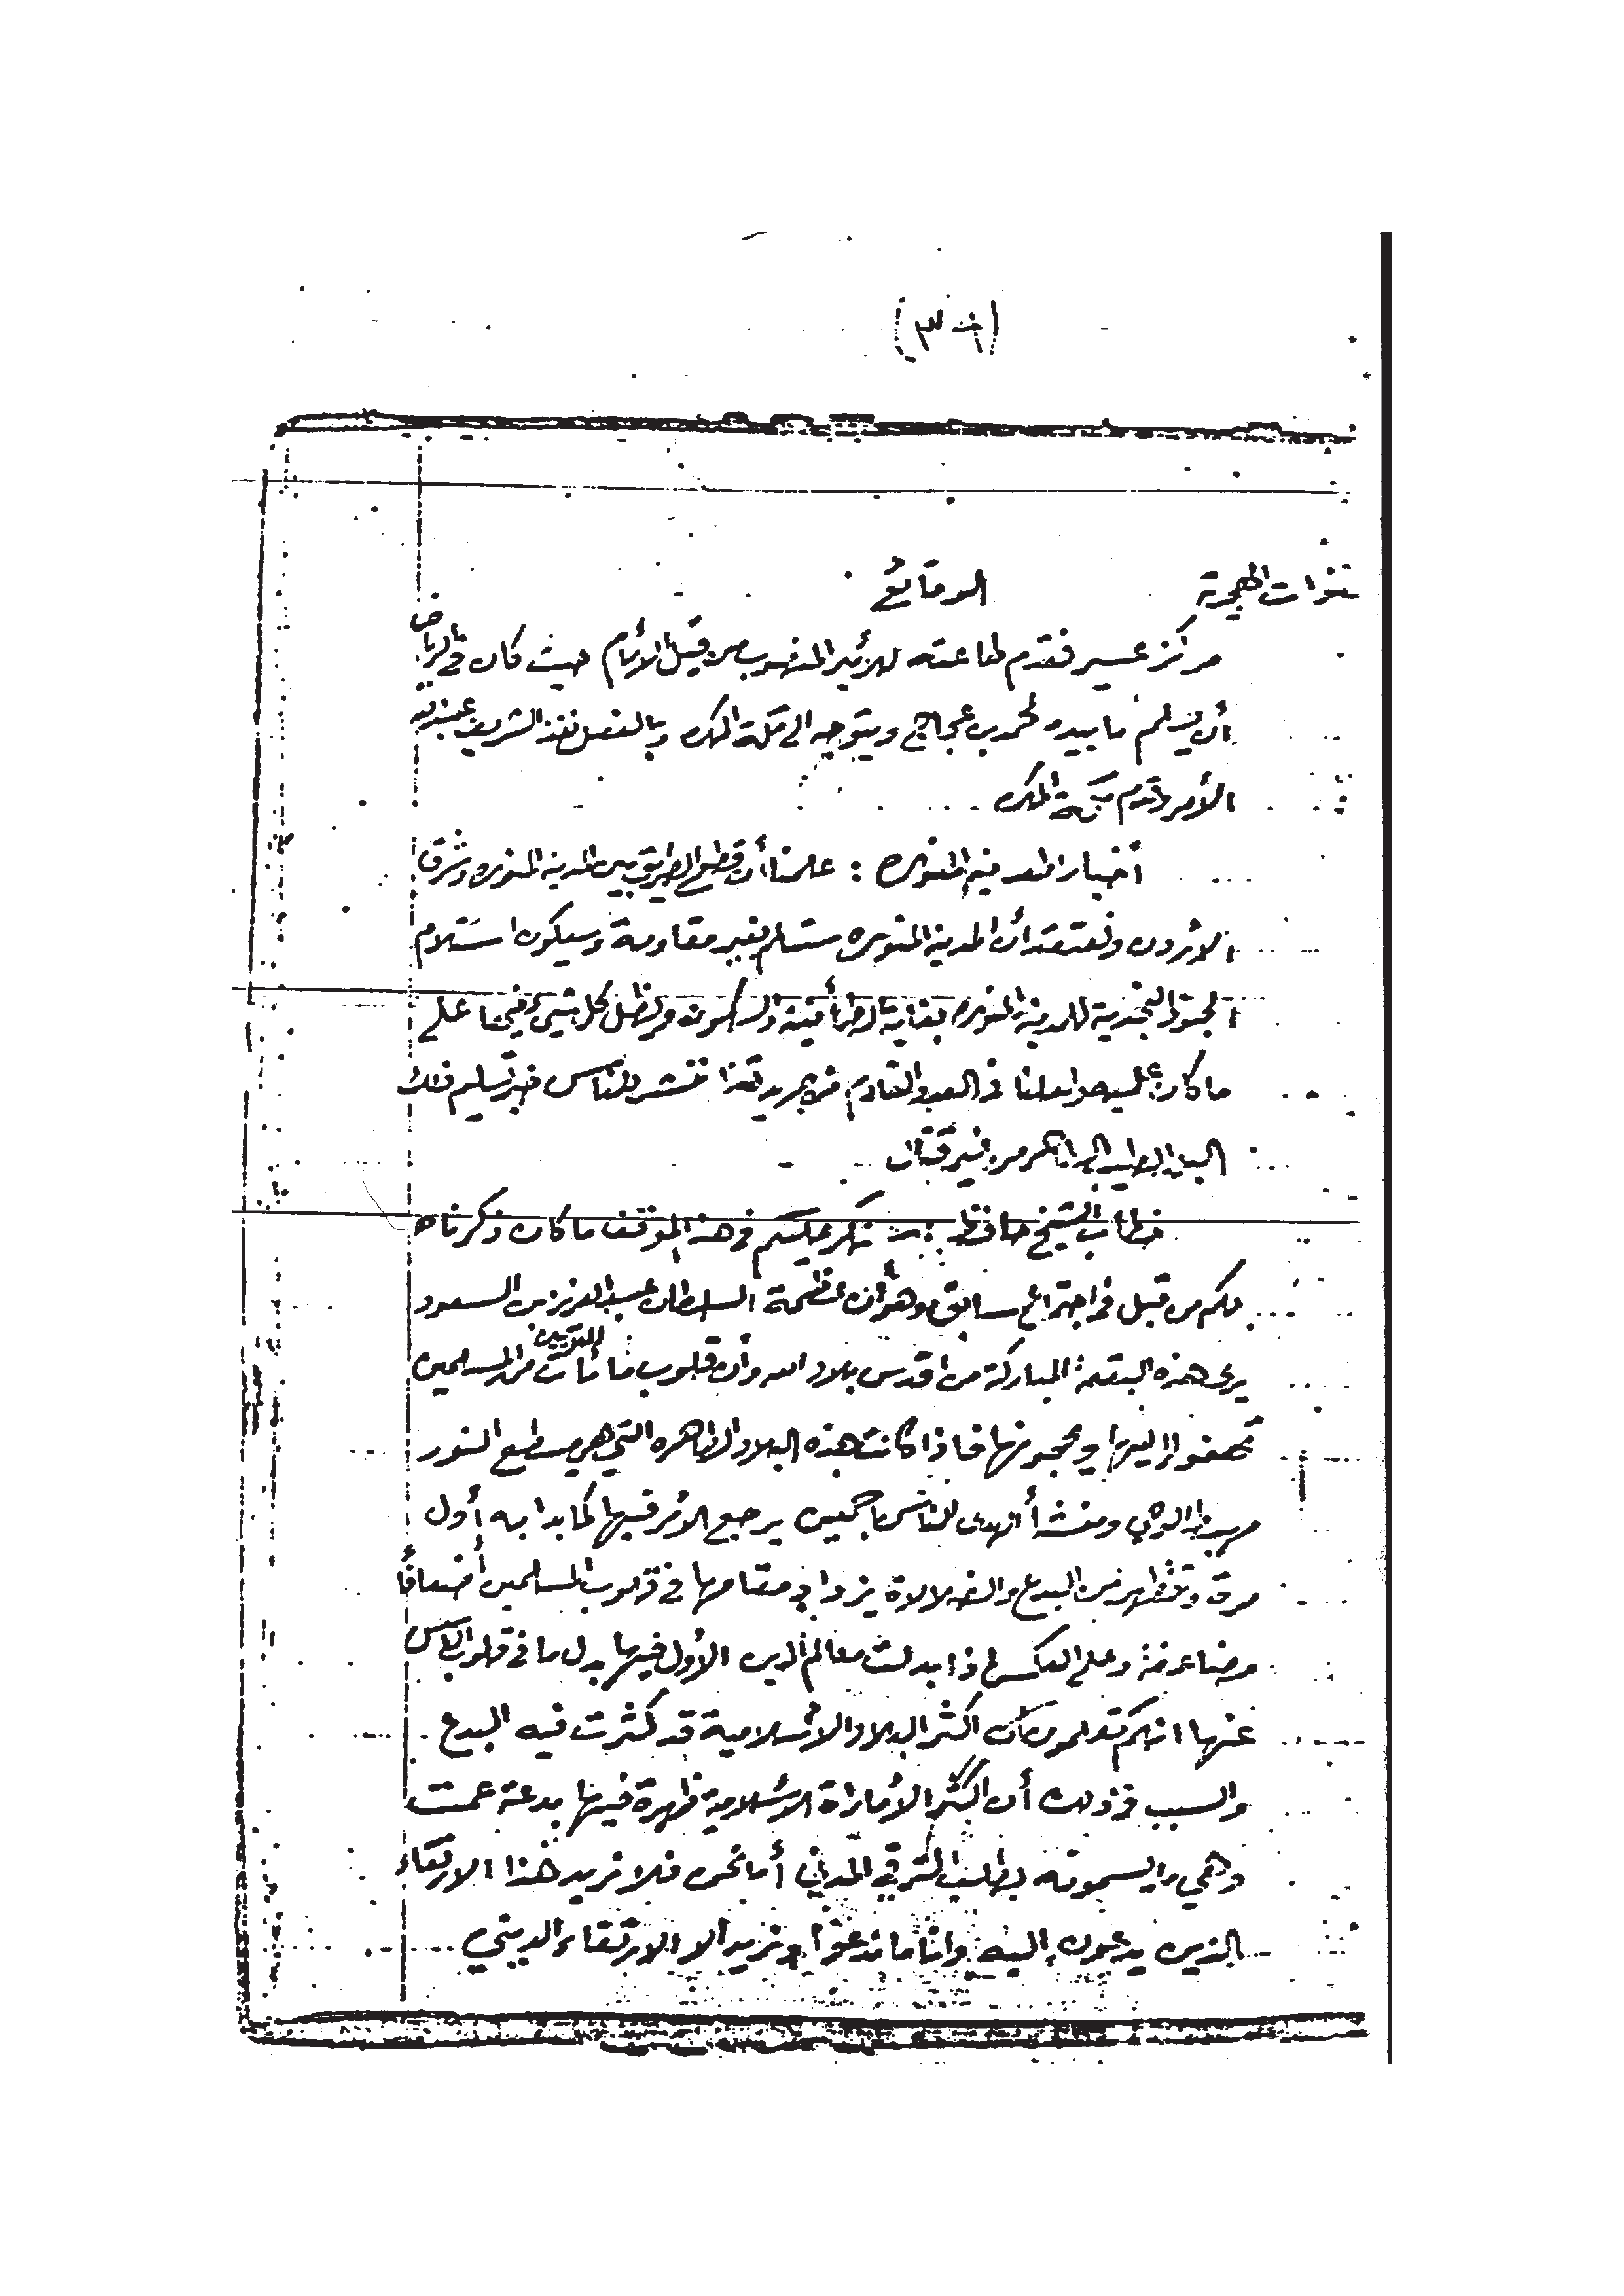 سنوات الهجرية الوقائع
مراكز عسير فقدم طاعته للأمير المنصوب من قبل الأمام حيث كان في الرياض
أن يسلم ما بيده لحمد بن عجاج ويتوجه الى مكة المكرمه وبالفعل نفذ الشريف عبدالله
الأمر وقدم مكة المكرمه
أخبار المدينه المنوره : علمنا أن قطع الطريق بين المدينه المنوره وشرق
الأردن ونعتقد أن المدينه المنوره ستسلم بغير مقاومة وسيكون استلام
الجنود النجدية للمدينة المنوره بغاية الطمأنينة والسكون ويظل كل شيئ فيها على
ما كان عليه ولعلنا في العدد القادم من جريدتنا ننشر للناس خبر تسليم ذلك
البلد الطيب الطاهر من غير قتال
خطاب الشيخ حافظ : نكرر عليكم في هذا الموقف ما كان ذكرناه
لكم من قبل في اجتماع سابق وهو أن عظمة السلطان عبدالعزيز بن السعود
يرى هذه البقعة المباركة من اقدس بلاد الله وأن قلوب مأآت الملايين من المسلمين
تهفو اليها ويحجونها فاذا كانت هذه البلاد الطاهره التي هي مسطع النور
ومنشأ الهدى للناس اجمعين يرجع الأمر فيها كما بدا به أول
مرة وتطهر من البدع والضلالة يزداد مقامها في قلوب المسلمين أضعافاً
مضاعفة وعلى العكس اذا بدلت معالم الدين الأول فيها بدل ما في قلوب الناس
عنها انكم تعلمون أن اكثر البلاد الأسلامية قد كثرت فيه البدع
والسبب في ذلك أن اكثر الأمارات الأسلامية ظهرة فيها بدعة عمت
وهي ما يسمونه بطلب الترقي المدني أما نحن فلا نريد هذا الارتقاء
الذين يدعون إليه وانا ما ندعوا ونريد الا الارتقاء الديني